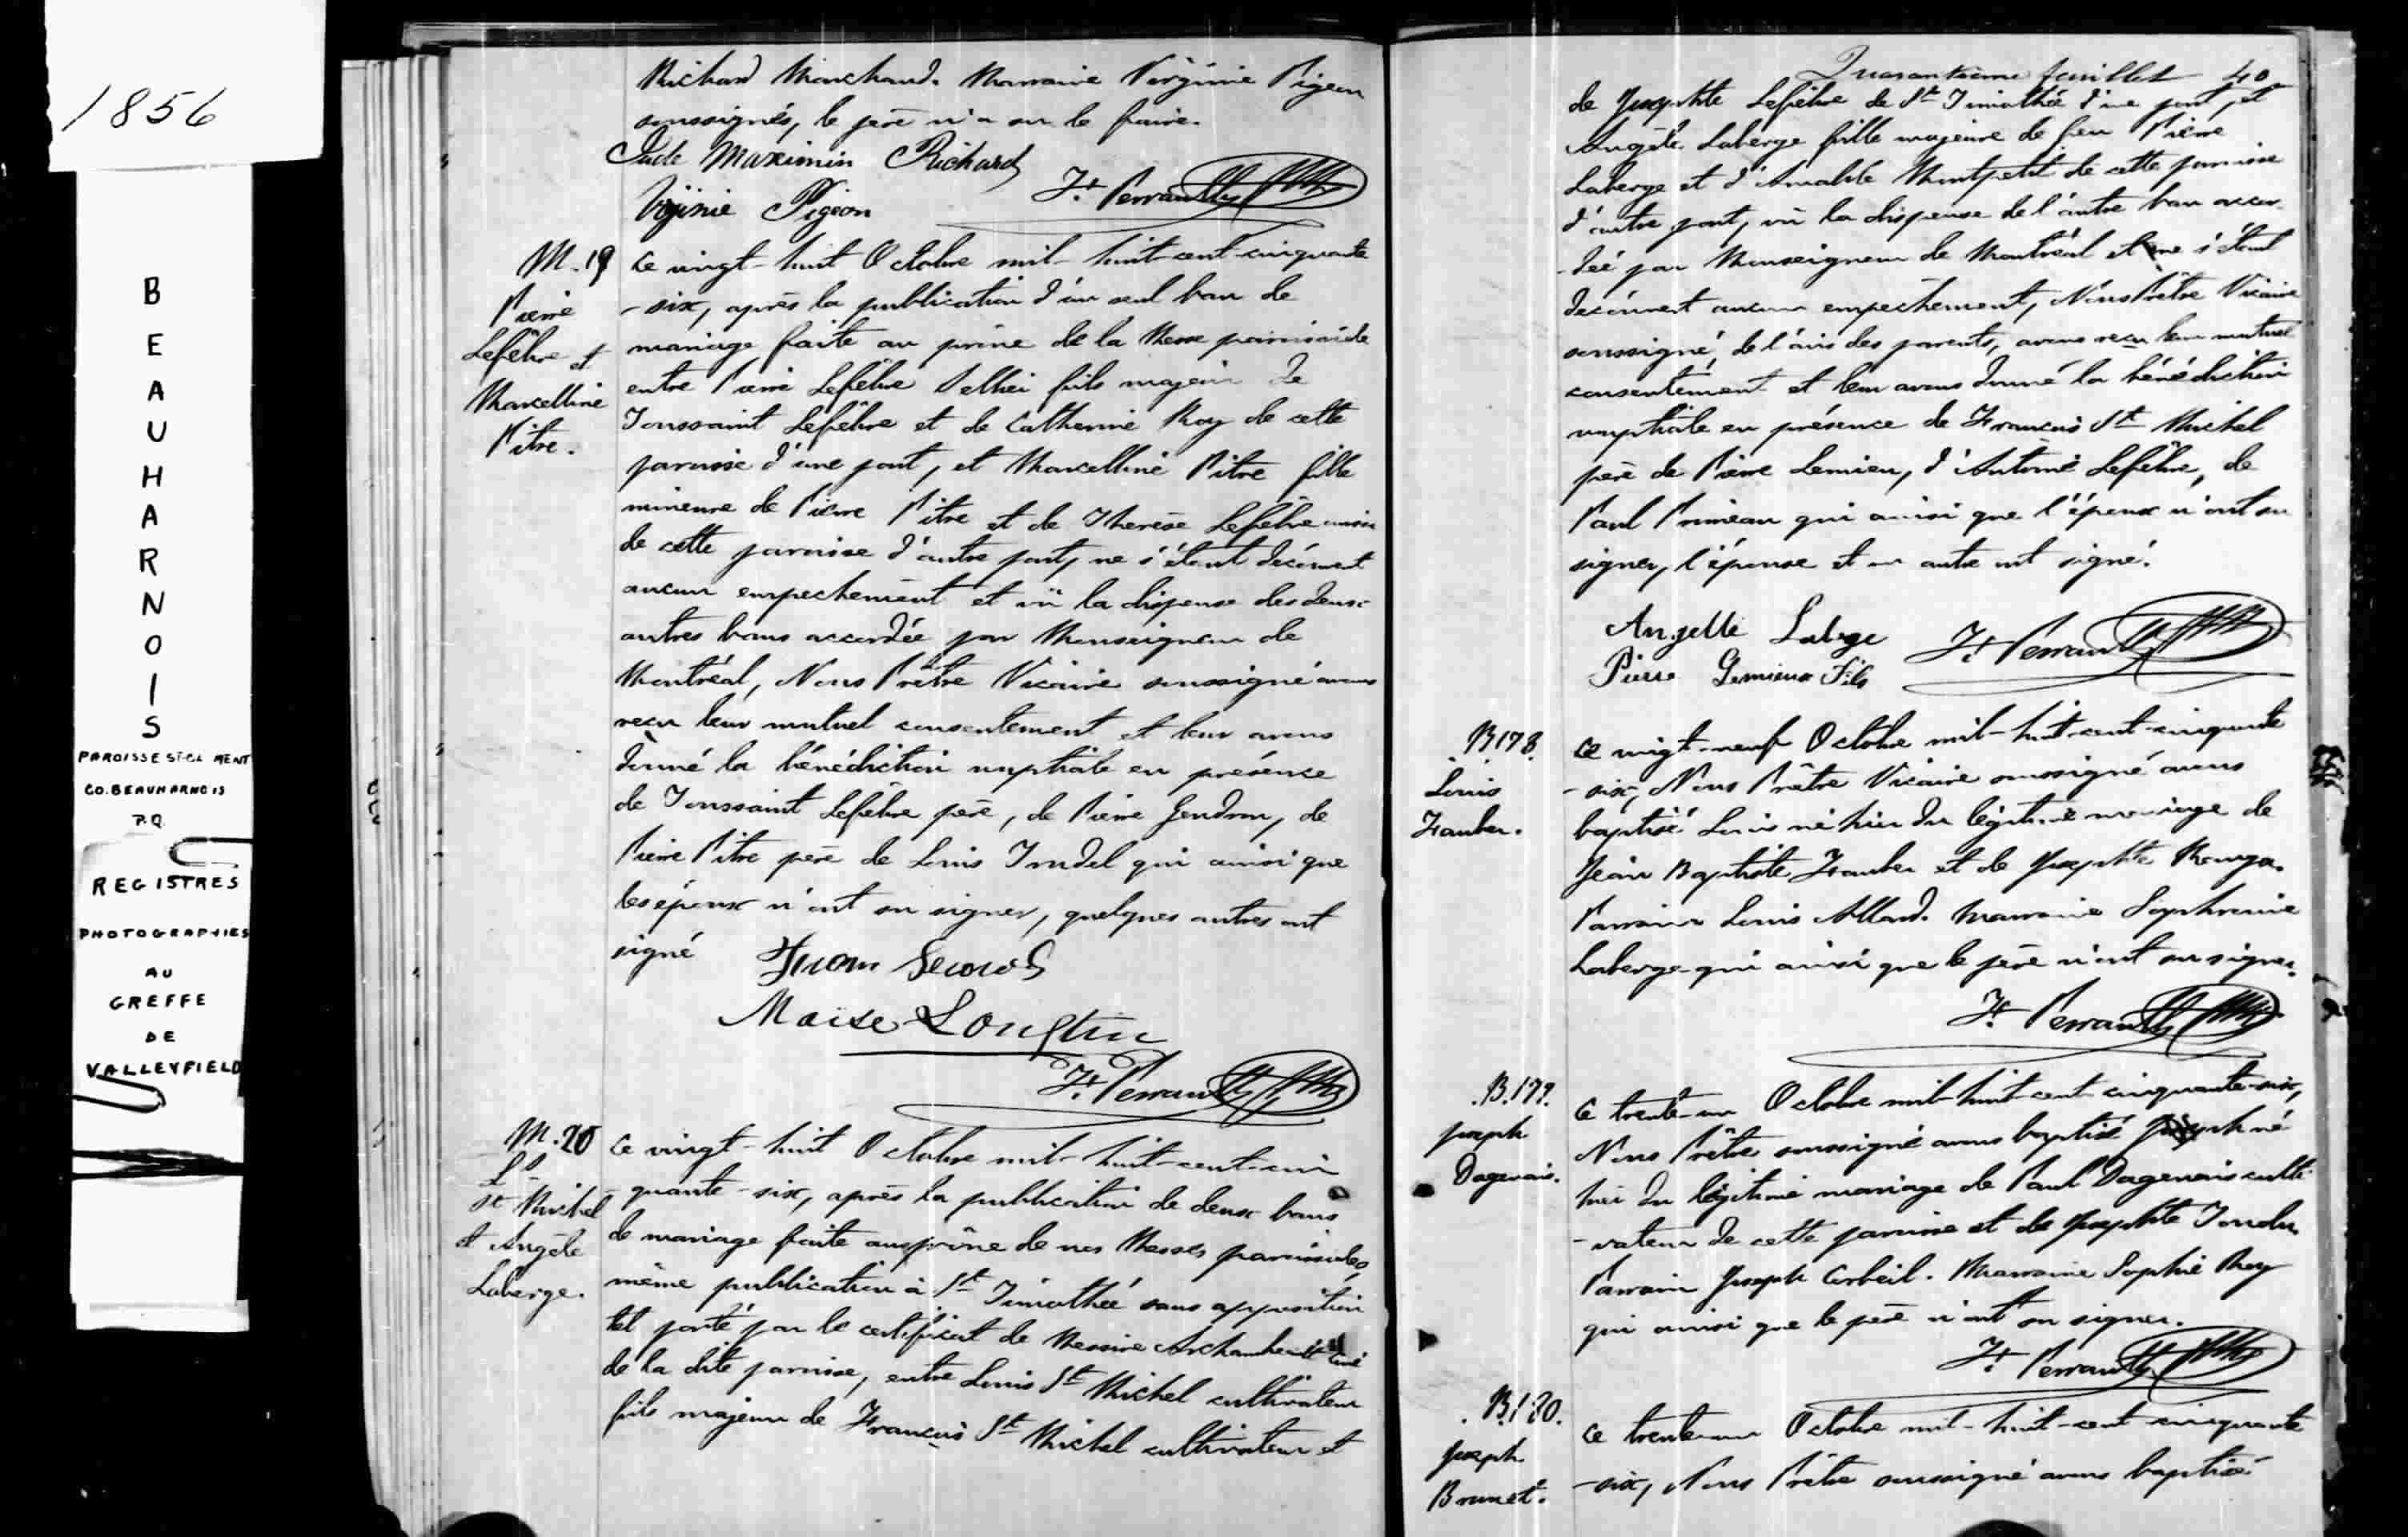 1856
B
E
A
U
H
A
R
N
O
I
S
PAROISSE ST-CLEMENT
CO. BEAUHARNOIS
P.Q.
REGISTRES
PHOTOGRAPHIES
AU
GREFFE
DE
VALLEYFIELD
Richard Marchand. Marraine Virginie Pigeon
soussignés, le père n'a su le faire.
Jude Maximin Richard
Virjinie Pigeon
Ft. Perrault Ptre
M. 19
Pierre
Lefebvre et
Marcelline
Pitre.
Ce vingt-huit Octobre mil-huit-cent-cinquante
-six, après la publication d'un seul ban de
mariage faite au prône de la Messe paroissiale
entre Pierre Lefebvre Sellier fils majeur de
Toussaint Lefebvre et de Catherine Roy de cette
paroisse d'une part, et Marcelline Pitre fille
mineure de Pierre Pitre et de Therèse Lefebvre aussi
de cette paroisse d'autre part, ne s'étant découvert
aucun empechement et vû la dispense des deux
autres bans accordée par Monseigneur de
Montréal, Nous Prêtre Vicaire soussigné avons
reçu leur mutuel consentement et leur avons
donné la bénédiction nuptiale en présence
de Toussaint Lefebvre père, de Pierre Gendron, de
Pierre Pitre père de Louis Trudel qui ainsi que
les époux n'ont su signer, quelques autres ont
signé
Moïse Longtin
Ft. Perrault Ptre
M. 20
Ls
St Michel
et Angèle
Laberge.
Ce vingt-huit Octobre mil-huit-cent-cin
quante-six, après la publication de deux bans
de mariage faite au prône de nos Messes paroissiales,
même publication à St Timothée sans opposition
tel porté par le certificat de Messire Archambault Curé
de la dite paroisse, entre Louis St Michel cultivateur
fils majeur de François St Michel cultivateur et
Quarantième feuillet 40
de Josephte Lefebvre de St Timothée d'une part, et
Angèle Laberge fille majeure de feu Pierre
Laberge et d'Amable Montpetit de cette paroisse
d'autre part, vû la dispense de l'autre ban accor-
-dée par Monseigneur de Montréal et ne s'étant
découvert aucun empechement, Nous Prêtre Vicaire
soussigné, de l'avis des parents, avons reçu leur mutuel
consentement et leur avons donné la bénédiction
nuptiale en présence de François St Michel
père de Pierre Lemieu, d'Antoine Lefebvre, de
Paul Primeau qui ainsi que l'époux n'ont su
signer, l'épouse et un autre ont signé.
Angelle Laberge
Pierre Lemieux Fils
Ft. Perrault Ptre
B. 178.
Louis
Ce vingt-neuf Octobre mil-huit-cent-cinquante
-six, Nous Prêtre Vicaire soussigné avons
baptisé Louis né hier du légitime mariage de
Jean Baptiste et de Josephte
Parrain Louis Allard. Marraine Sophronie
Laberge qui ainsi que le père n'ont su signer.
Ft. Perrault Ptre
B. 179.
Joseph
Dagenais.
Ce trente-un Octobre mil-huit-cent-cinquante-six,
Nous Prêtre soussigné avons baptisé Joseph né
hier du légitime mariage de Paul Dagenais culti
-vateur de cette paroisse et de Josephte
Parrain Joseph Corbeil. Marraine Sophie Roy
qui ainsi que le père n'ont su signer.
Ft. Perrault Ptre
B. 180.
Joseph
Brunet.
Ce trente-un Octobre mil-huit-cent-cinquante
-six, Nous Prêtre soussigné avons baptisé